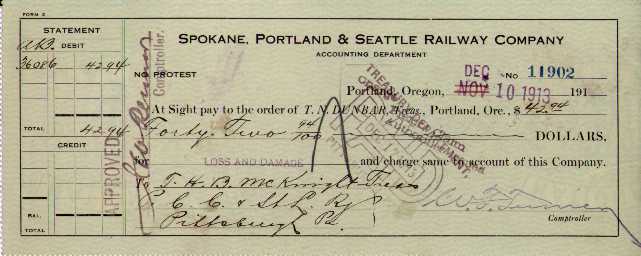 FORM 2
STATEMENT
DEBIT
36086 42 94
TOTAL 42 94
CREDIT
BAL.
TOTAL
APPROVED
Comptroller.
SPOKANE, PORTLAND & SEATTLE RAILWAY COMPANY
ACCOUNTING DEPARTMENT
NO PROTEST
No 11902
Portland, Oregon, DEC NOV 10 1913 191
At Sight pay to the order of T. N. DUNBAR, Treas., Portland, Ore., $ 42.94
Forty Two 94/100 DOLLARS,
for LOSS AND DAMAGE and charge same to account of this Company.
To T. H. B. McKnight Treas
P. C. C. & St. L. Ry
Pittsburgh Pa.
Comptroller